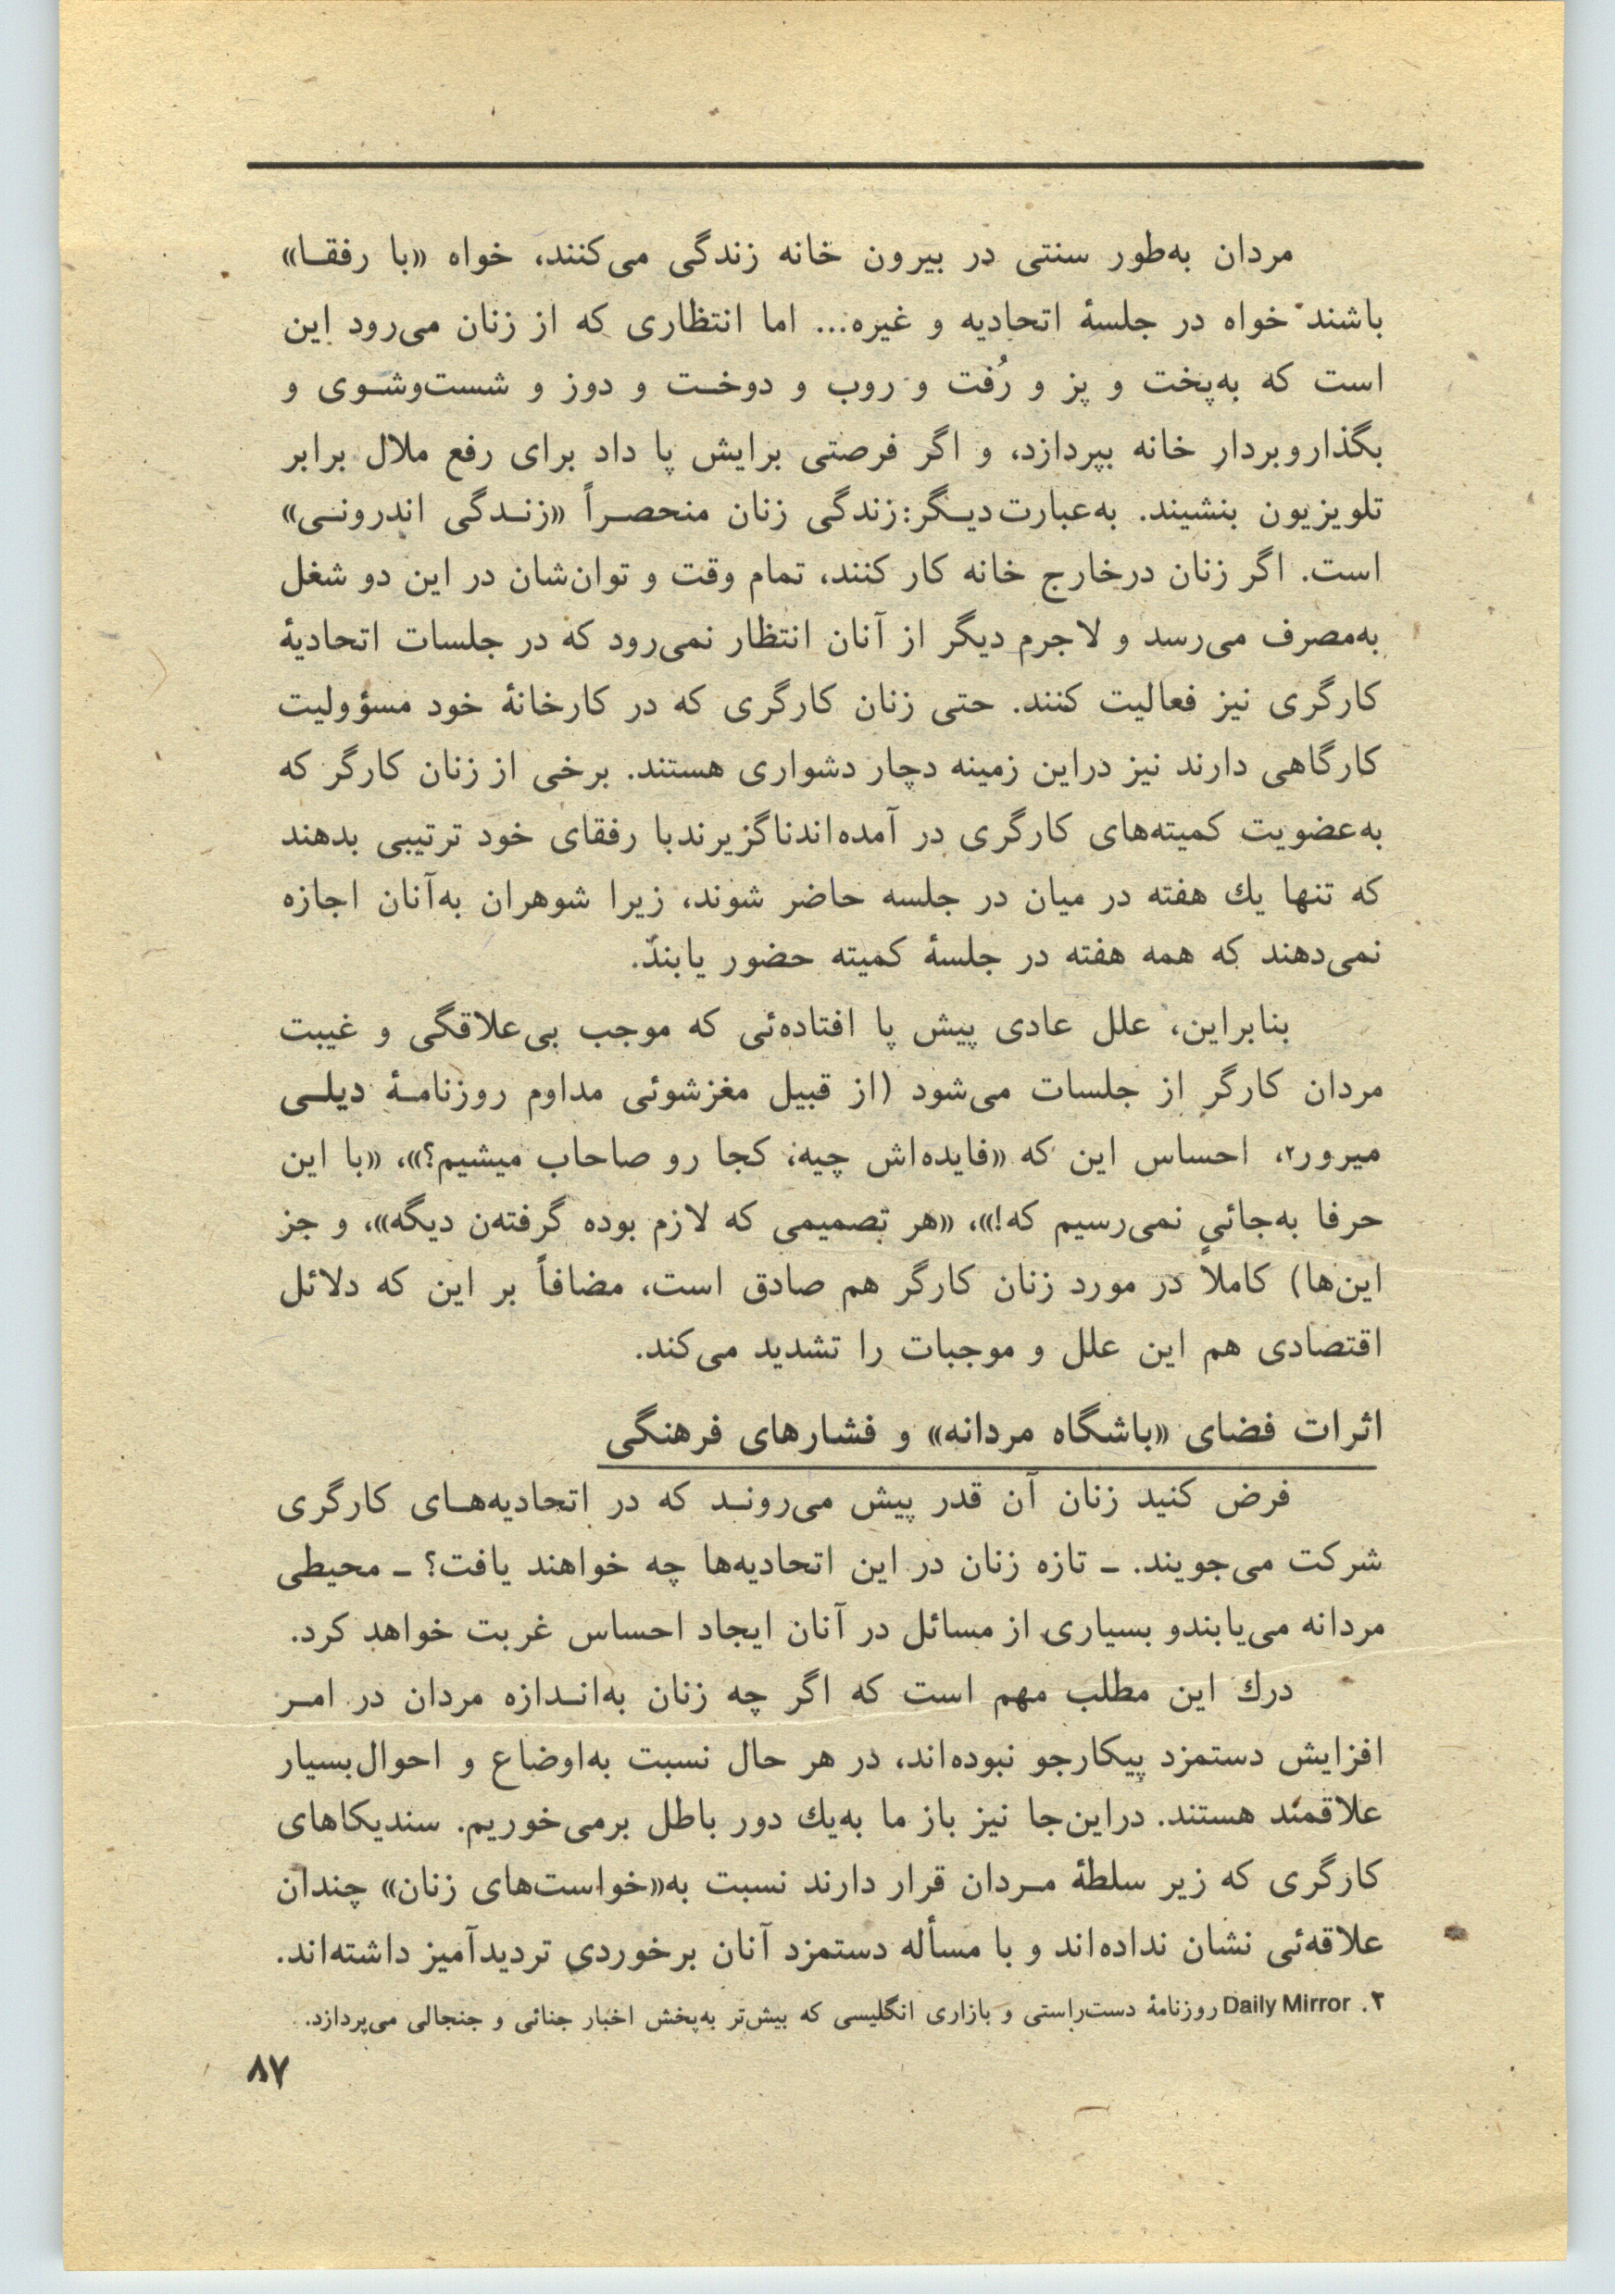 مردان به‌طور سنتی در بیرون خانه زندگی می‌کنند، خواه «با رفقـا»
باشند خواه در جلسهٔ اتحادیه و غیره... اما انتظاری که از زنان می‌رود این
است که به‌پخت و پز و رُفت و روب و دوخـت و دوز و شست‌وشـوی و
بگذاروبردار خانه بپردازد، و اگر فرصتی برایش پا داد برای رفع ملال برابر
تلویزیون بنشیند. به‌عبارت‌دیـگر: زندگی زنان منحصـراً «زنـدگی اندرونـی»
است. اگر زنان درخارج خانه کار کنند، تمام وقت و توان‌شان در این دو شغل
به‌مصرف می‌رسد و لاجرم دیگر از آنان انتظار نمی‌رود که در جلسات اتحادیهٔ
کارگری نیز فعالیت کنند. حتی زنان کارگری که در کارخانهٔ خود مسؤولیت
کارگاهی دارند نیز دراین زمینه دچار دشواری هستند. برخی از زنان کارگر که
به‌عضویت کمیته‌های کارگری در آمده‌اندناگزیرندبا رفقای خود ترتیبی بدهند
که تنها یك هفته در میان در جلسه حاضر شوند، زیرا شوهران به‌آنان اجازه
نمی‌دهند که همه هفته در جلسهٔ کمیته حضور یابند.
بنابراین، علل عادی پیش پا افتاده‌ئی که موجب بی‌علاقگی و غیبت
مردان کارگر از جلسات می‌شود (از قبیل مغزشوئی مداوم روزنامـهٔ دیلـی
میرور۲، احساس این که «فایده‌اش چیه، کجا رو صاحاب میشیم؟»، «با این
حرفا به‌جائی نمی‌رسیم که!»، «هر تصمیمی که لازم بوده گرفته‌ن دیگه»، و جز
این‌ها) کاملاً در مورد زنان کارگر هم صادق است، مضافاً بر این که دلائل
اقتصادی هم این علل و موجبات را تشدید می‌کند.
اثرات فضای «باشگاه مردانه» و فشارهای فرهنگی
فرض کنید زنان آن قدر پیش می‌رونـد که در اتحادیه‌هـای کارگری
شرکت می‌جویند. ـ تازه زنان در این اتحادیه‌ها چه خواهند یافت؟ ـ محیطی
مردانه می‌یابندو بسیاری از مسائل در آنان ایجاد احساس غربت خواهد کرد.
درك این مطلب مهم است که اگر چه زنان به‌انـدازه مردان در امـر
افزایش دستمزد پیکارجو نبوده‌اند، در هر حال نسبت به‌اوضاع و احوال‌بسیار
علاقمند هستند. دراین‌جا نیز باز ما به‌یك دور باطل برمی‌خوریم. سندیکاهای
کارگری که زیر سلطهٔ مـردان قرار دارند نسبت به«خواست‌های زنان» چندان
علاقه‌ئی نشان نداده‌اند و با مسأله دستمزد آنان برخوردی تردیدآمیز داشته‌اند.
۲. Daily Mirror روزنامهٔ دست‌راستی و بازاری انگلیسی که بیش‌تر به‌پخش اخبار جنائی و جنجالی می‌پردازد.
۸۷